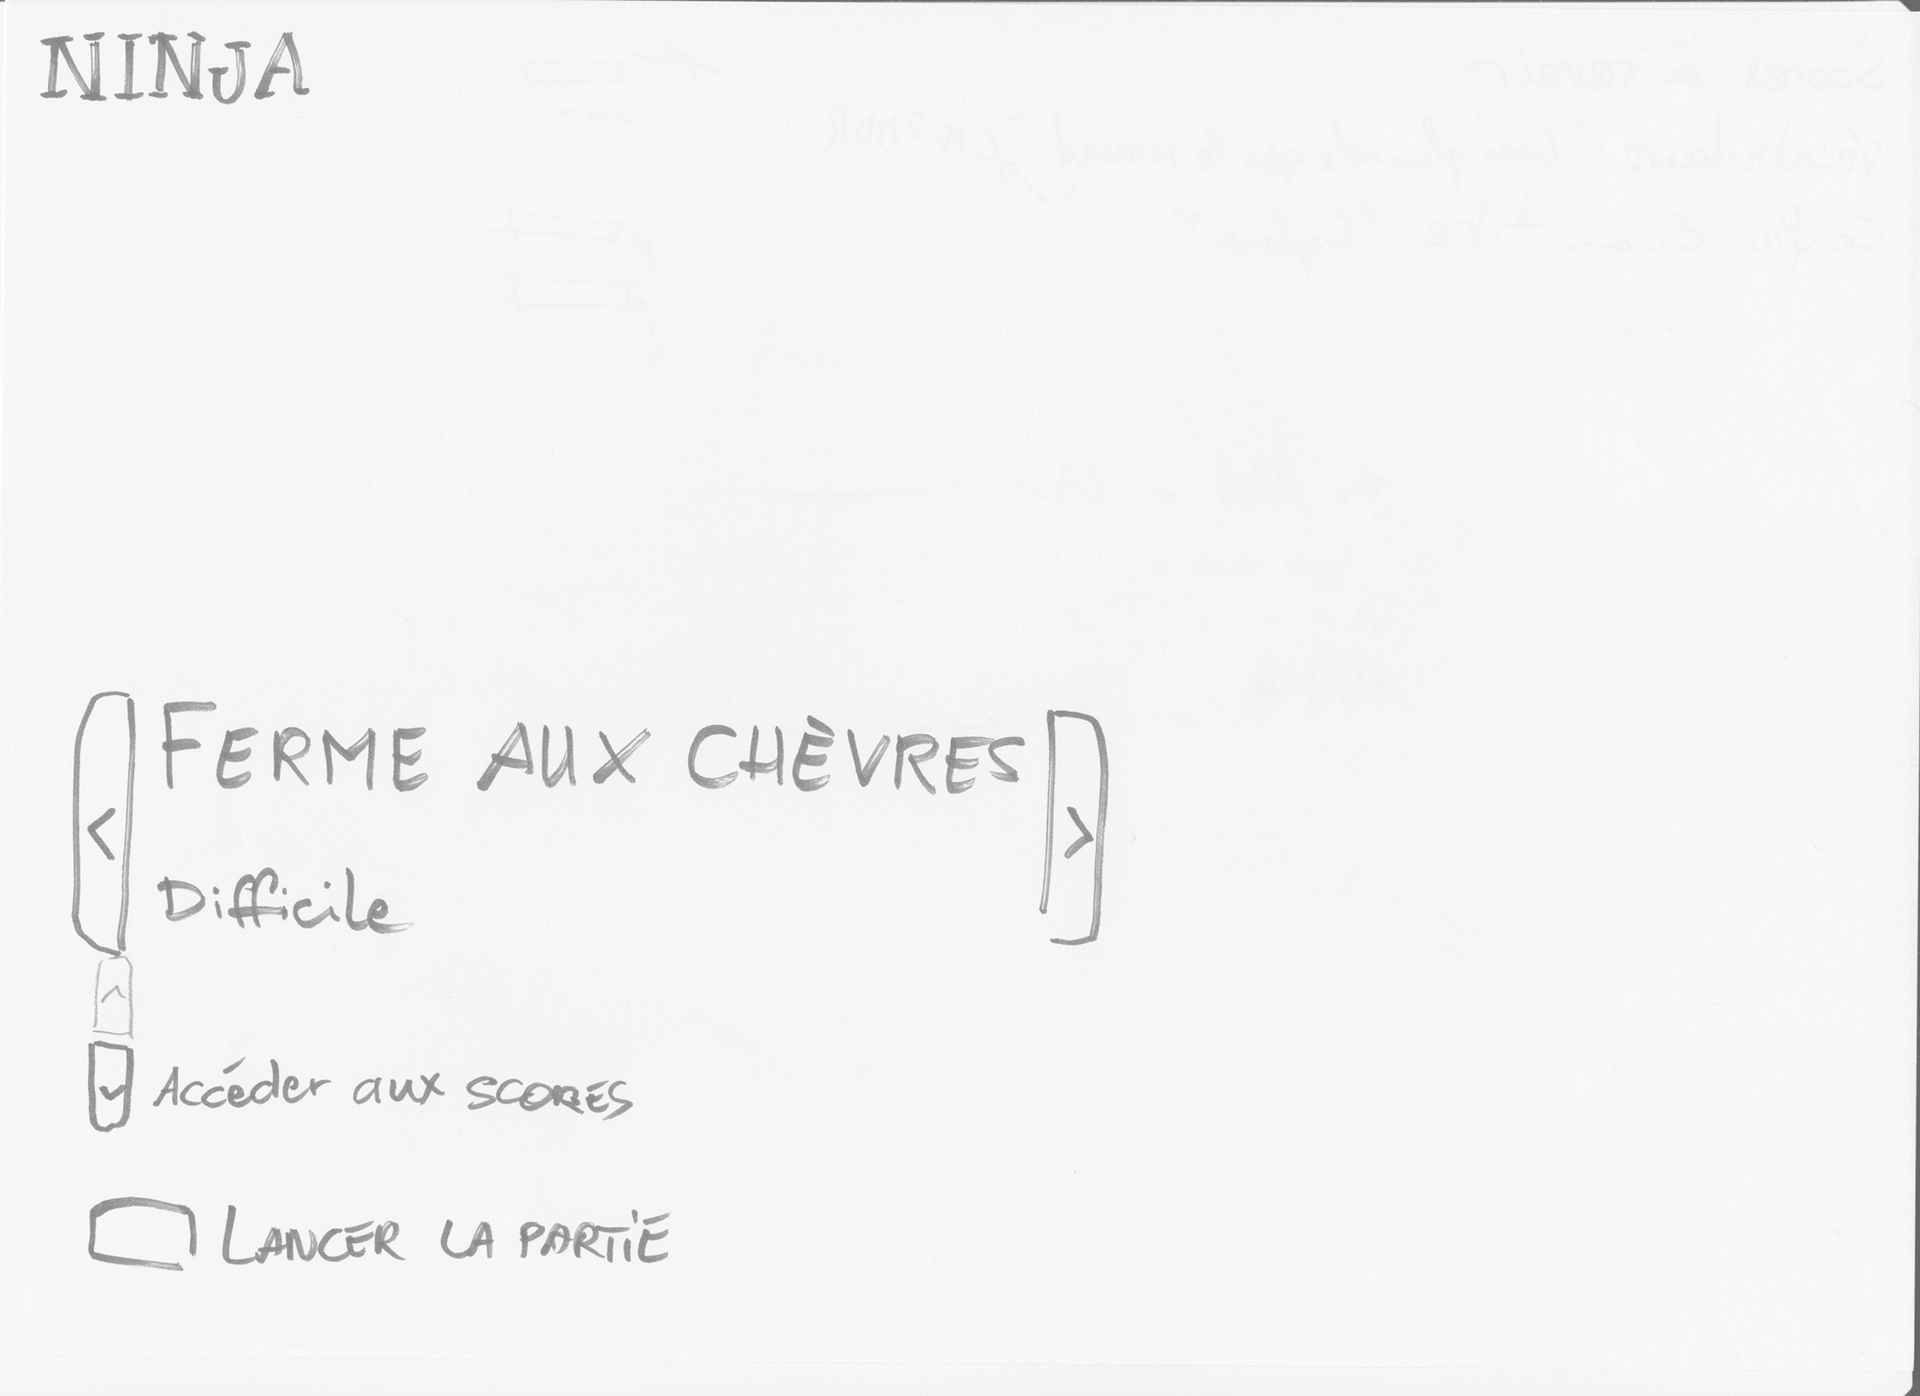 NINJA
< FERME AUX CHÈVRES >
Difficile
Accéder aux SCORES
LANCER LA PARTIE